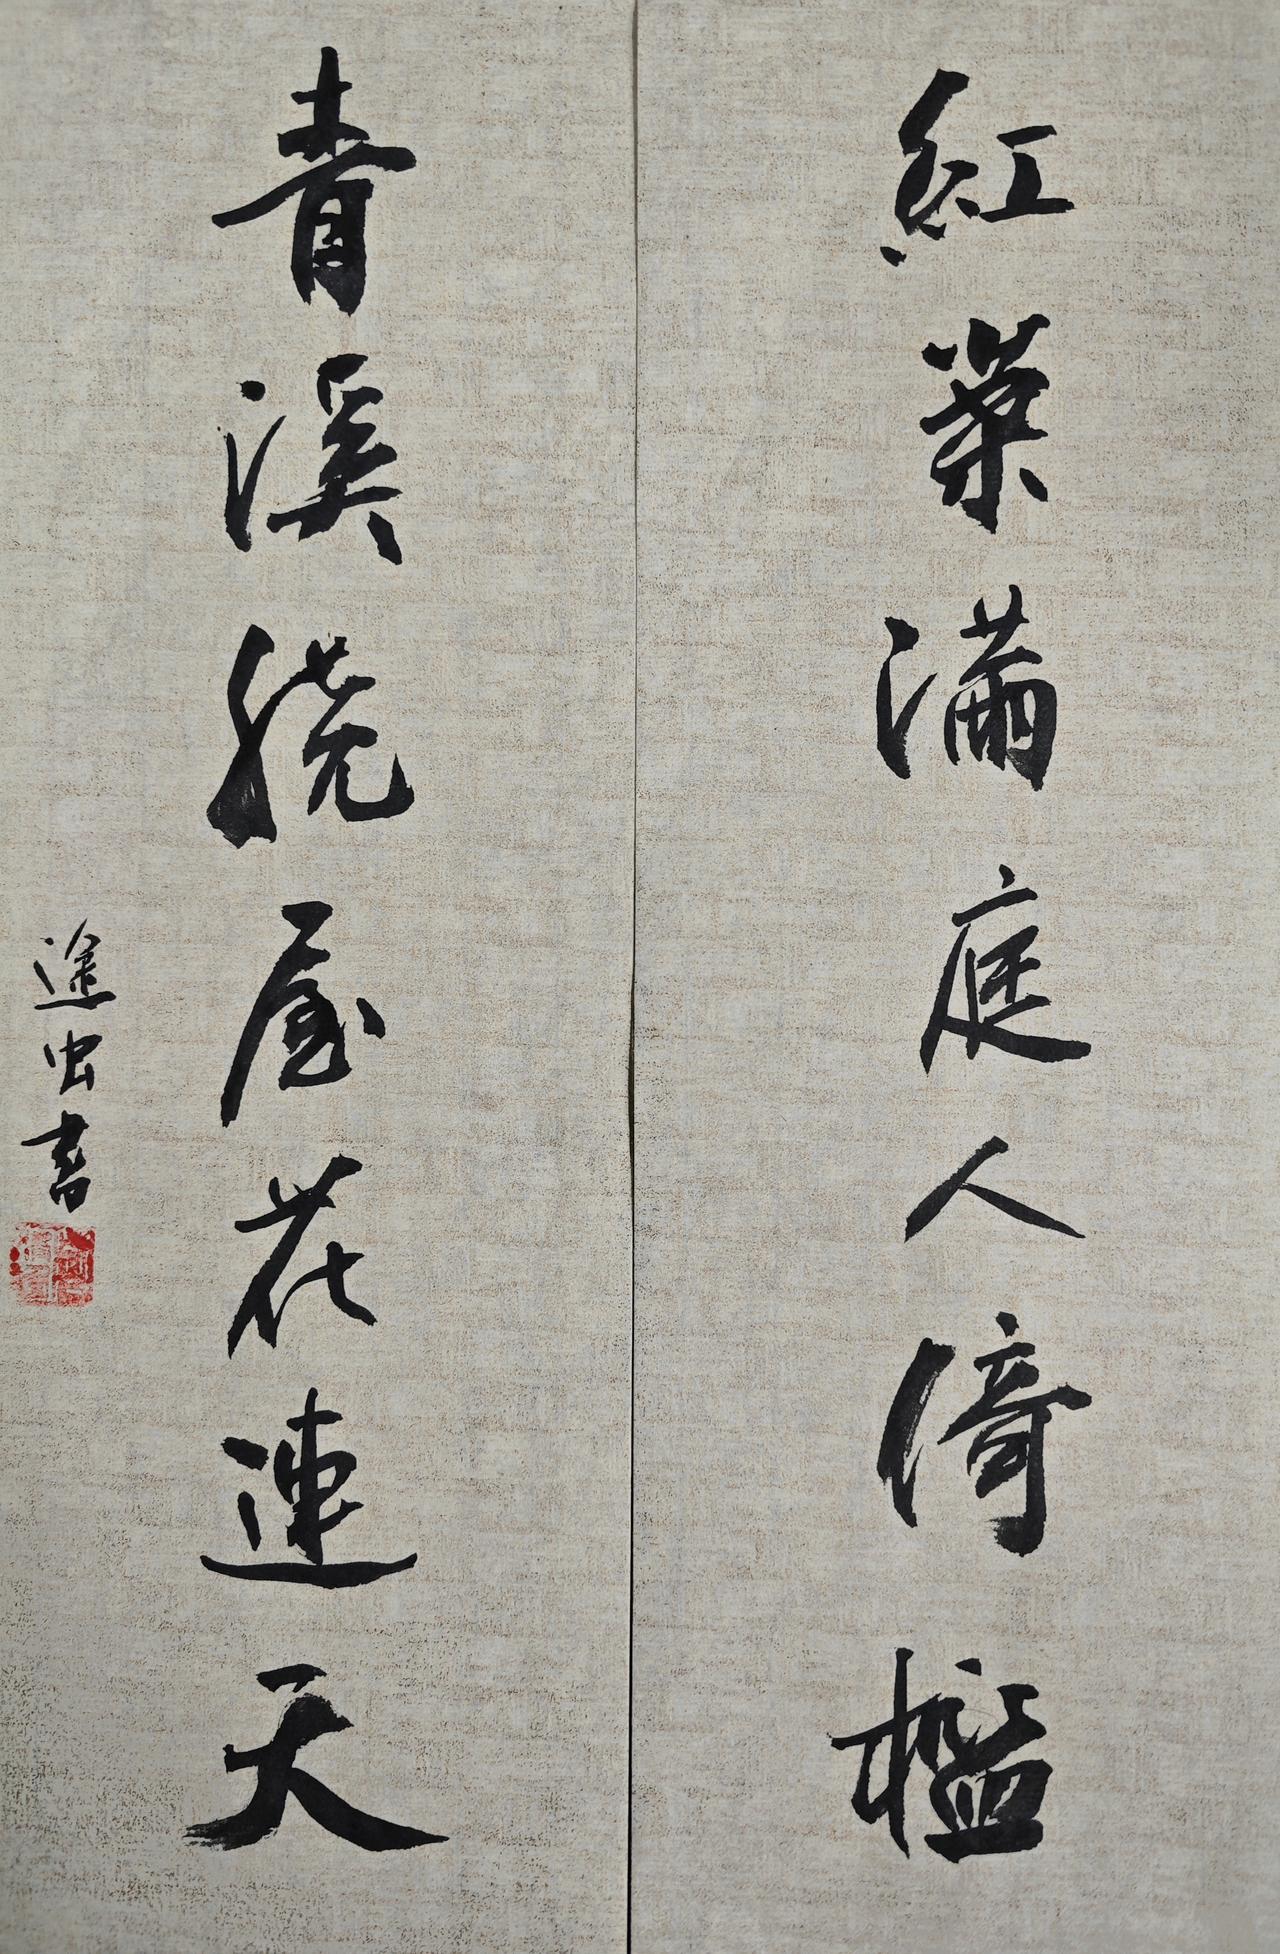 紅葉滿庭人倚檻
青溪繞屋花連天
途虫書